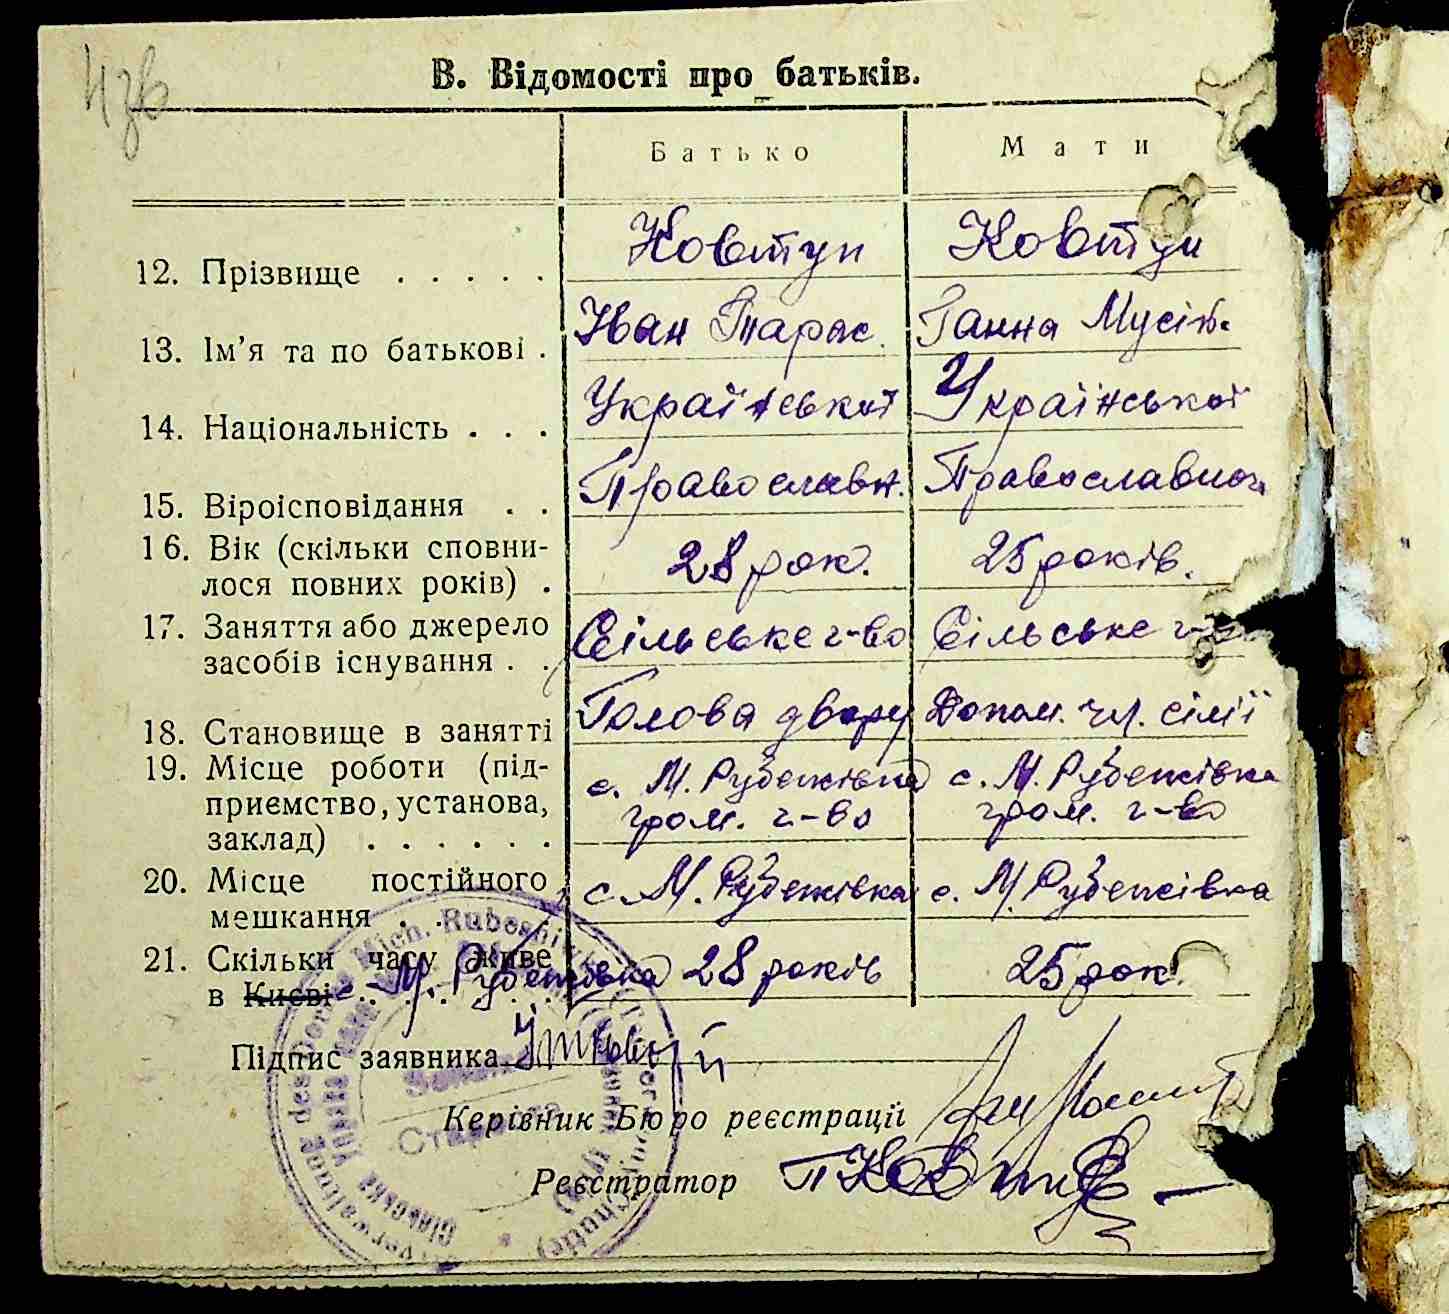 В. Відомості про батьків.
Батько Мати
12. Прізвище . . . . . Ковтун Ковтун
13. Ім’я та по батькові . Іван Тарас. Ганна Мусіїв.
14. Національність . . . Української Української
15. Віроісповідання . . Православн. Православної
16. Вік (скільки сповни-
лося повних років) . 28 рок. 25 років.
17. Заняття або джерело
засобів існування . . Сільське г-во Сільське г-во
18. Становище в занятті Голова двору Допом. чл. сім'ї
19. Місце роботи (під- с. М. Рубежівка с. М. Рубежівка
приємство, установа, гром. г-во гром. г-во
заклад) . . . . . .
20. Місце постійного
мешкання . . . с. М. Рубежівка с. М. Рубежівка
21. Скільки часу живе
в Києві с. М. Рубежівка 28 років 25 рок.
Підпис заявника
Керівник Бюро реєстрації
Реєстратор П Ковтун
verwaltung des Dorfes Mich. Rubeshiwka
Сільська Управа
Староста